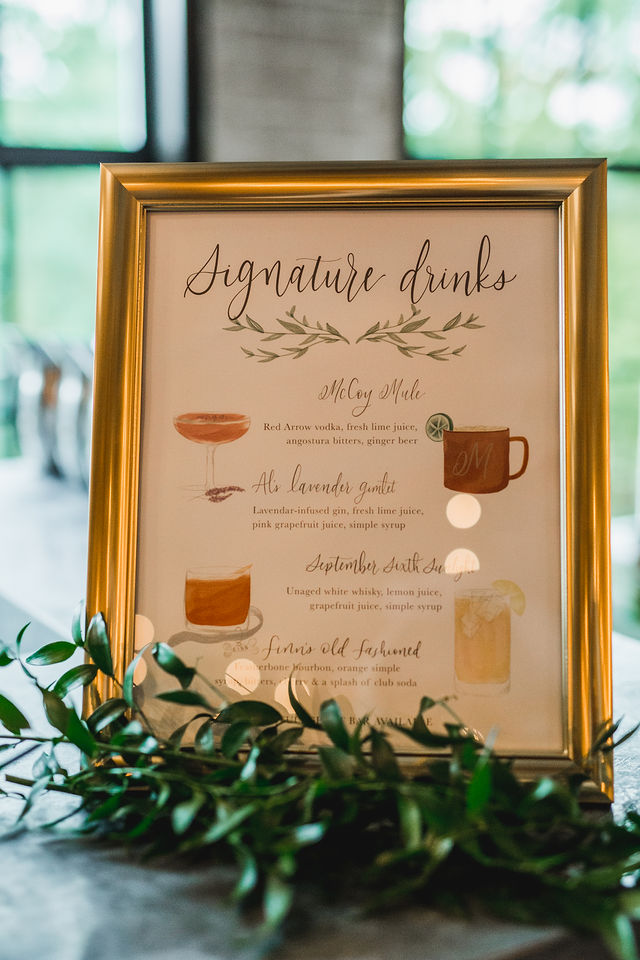 Signature drinks
McCoy Mule
Red Arrow vodka, fresh lime juice,
angostura bitters, ginger beer
M
Al's lavender gimlet
Lavendar-infused gin, fresh lime juice,
pink grapefruit juice, simple syrup
September Sixth Sunlight
Unaged white whisky, lemon juice,
grapefruit juice, simple syrup
Finn's Old Fashioned
Featherbone bourbon, orange simple
syrup, bitters, cherry & a splash of club soda
BAR AVAILABLE